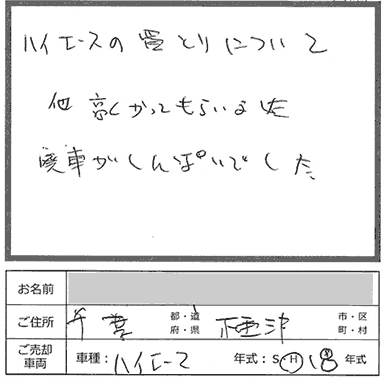 ハイエースの買とりについて
高くかってもらいました
廃車がしんぱいでした
お名前
ご住所 千葉 都・道 府・県 市・区 町・村
ご売却車両 車種：ハイエース 年式：S・H 18 年式